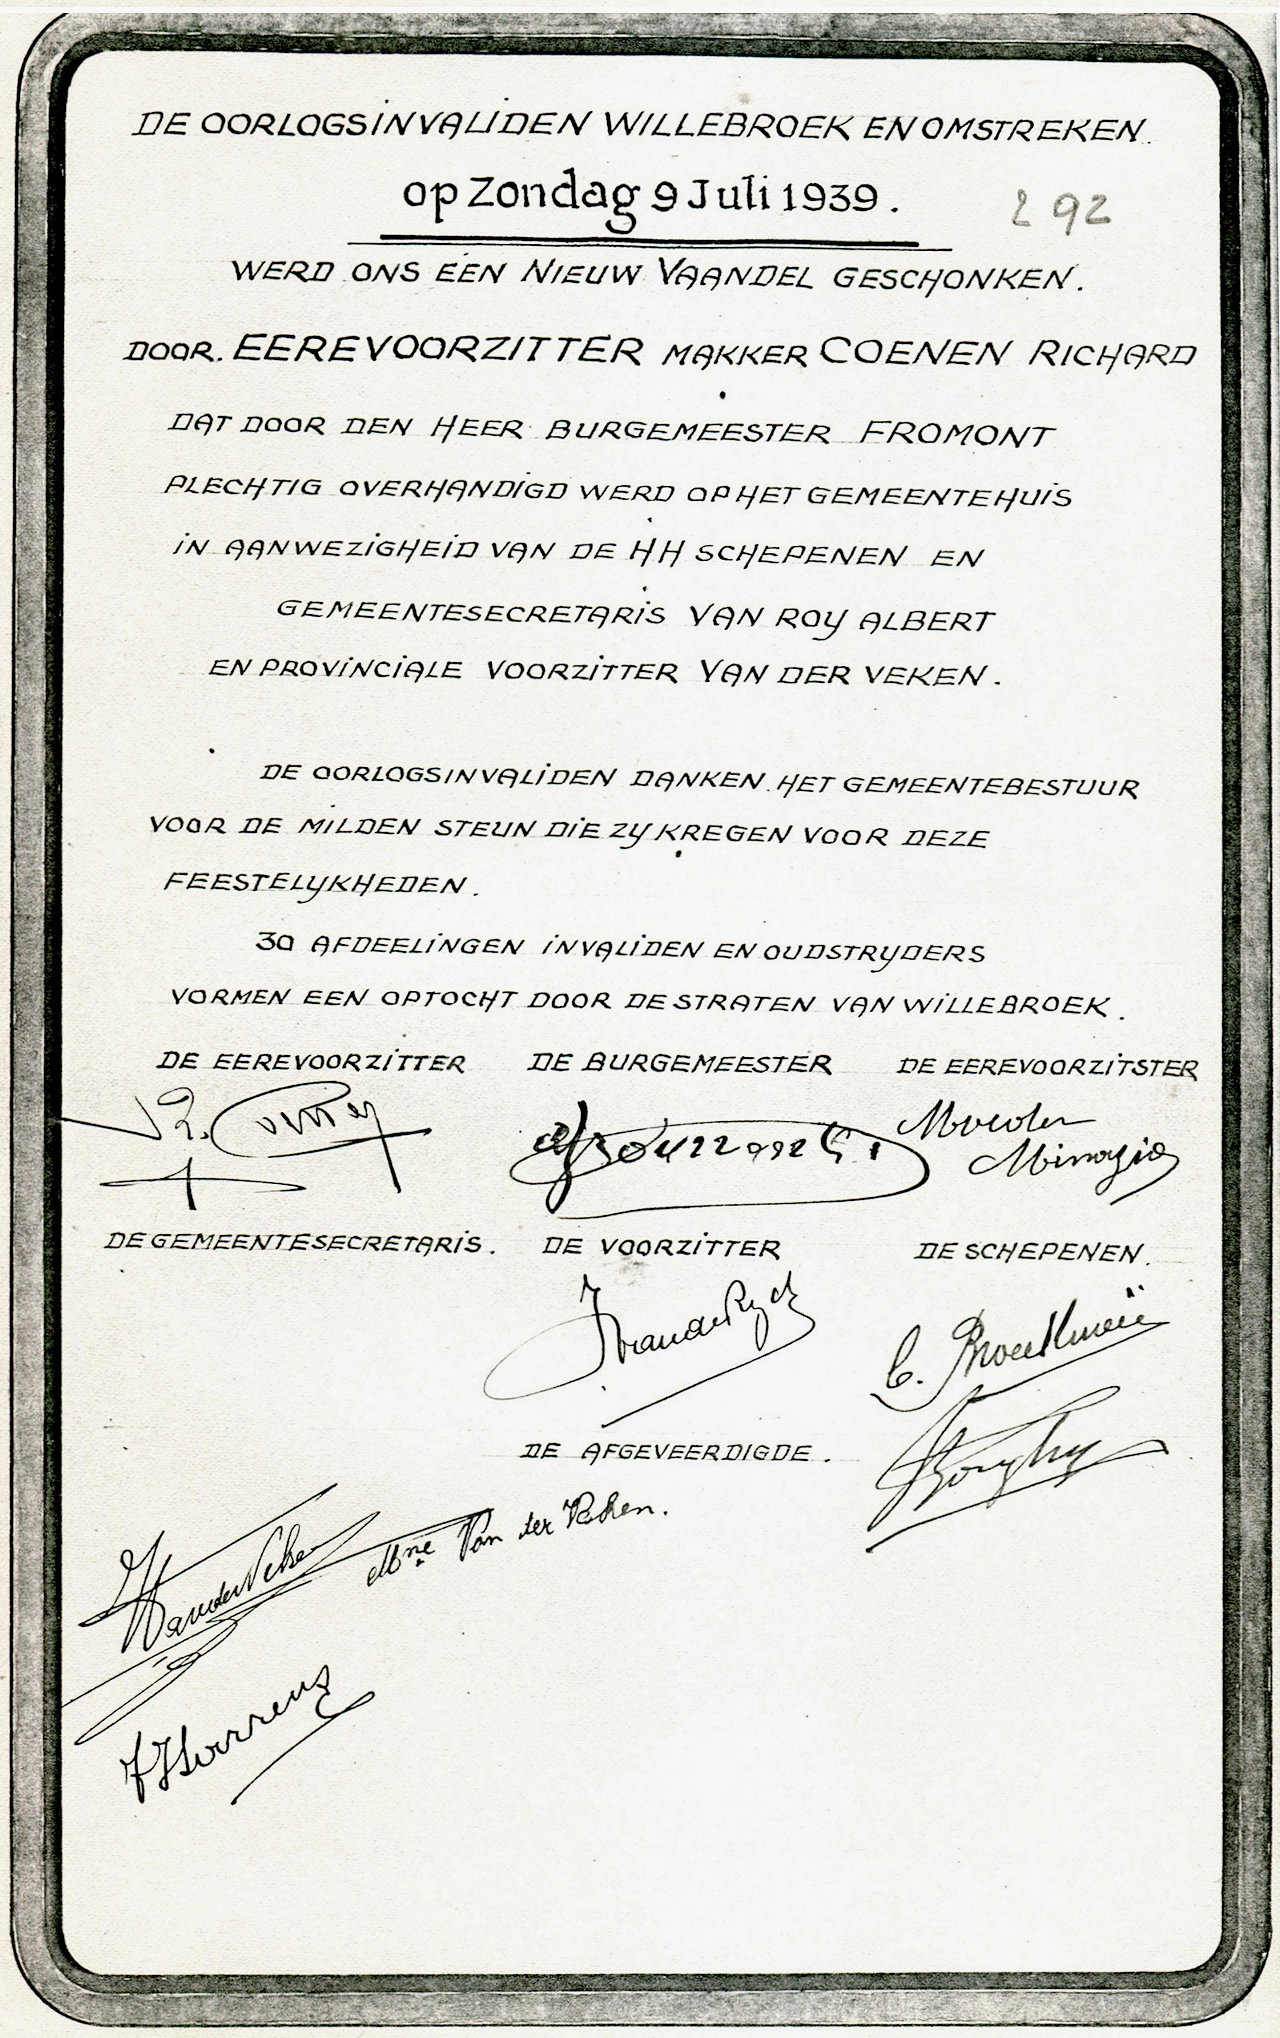 DE OORLOGSINVALIDEN WILLEBROEK EN OMSTREKEN.
op Zondag 9 Juli 1939.
292
WERD ONS EEN NIEUW VAANDEL GESCHONKEN.
DOOR. EEREVOORZITTER MAKKER COENEN RICHARD
DAT DOOR DEN HEER BURGEMEESTER FROMONT
PLECHTIG OVERHANDIGD WERD OP HET GEMEENTEHUIS
IN AANWEZIGHEID VAN DE HH SCHEPENEN EN
GEMEENTESECRETARIS VAN ROY ALBERT
EN PROVINCIALE VOORZITTER VAN DER VEKEN.
DE OORLOGSINVALIDEN DANKEN HET GEMEENTEBESTUUR
VOOR DE MILDEN STEUN DIE ZY KREGEN VOOR DEZE
FEESTELYKHEDEN.
30 AFDEELINGEN INVALIDEN EN OUDSTRYDERS
VORMEN EEN OPTOCHT DOOR DE STRATEN VAN WILLEBROEK.
DE EEREVOORZITTER DE BURGEMEESTER DE EEREVOORZITSTER
DE GEMEENTESECRETARIS. DE VOORZITTER DE SCHEPENEN.
DE AFGEVEERDIGDE.
Mme Van der Veken.